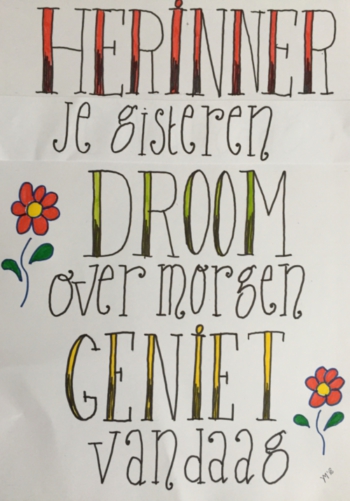 HERINNER
je gisteren
DROOM
over morgen
GENIET
vandaag